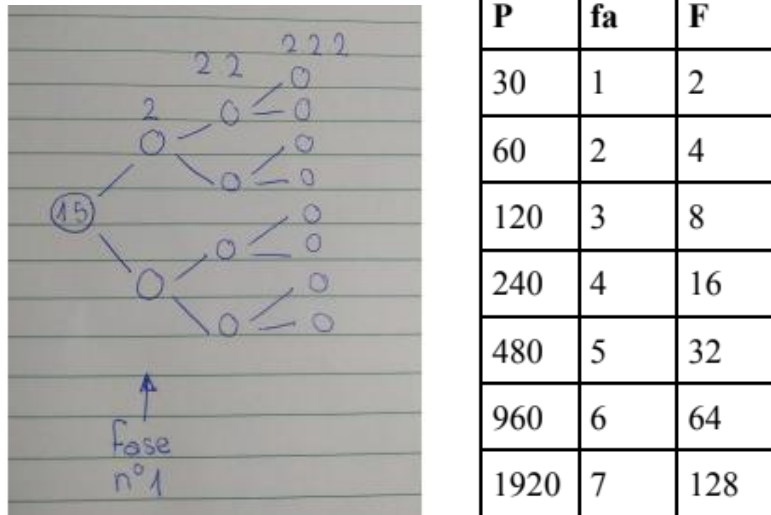 2 2 2
2 2
2
15
Fase
nº1
P fa F
30 1 2
60 2 4
120 3 8
240 4 16
480 5 32
960 6 64
1920 7 128